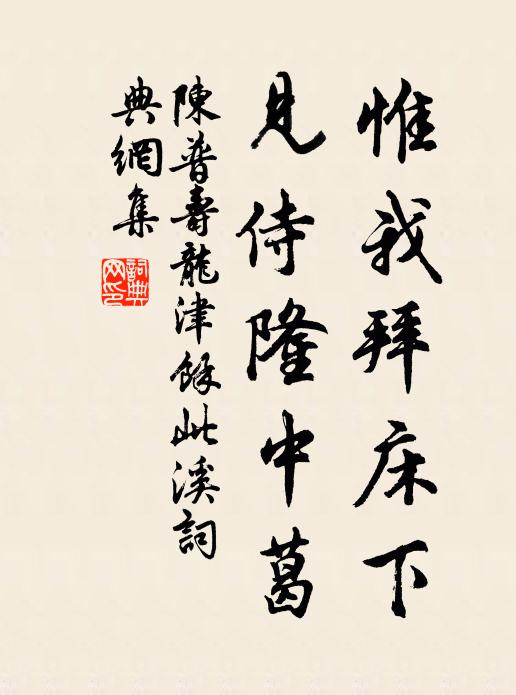 惟我拜床下
見侍隆中葛
陳普壽龍津餘此溪詞
典網集
詞典
网印